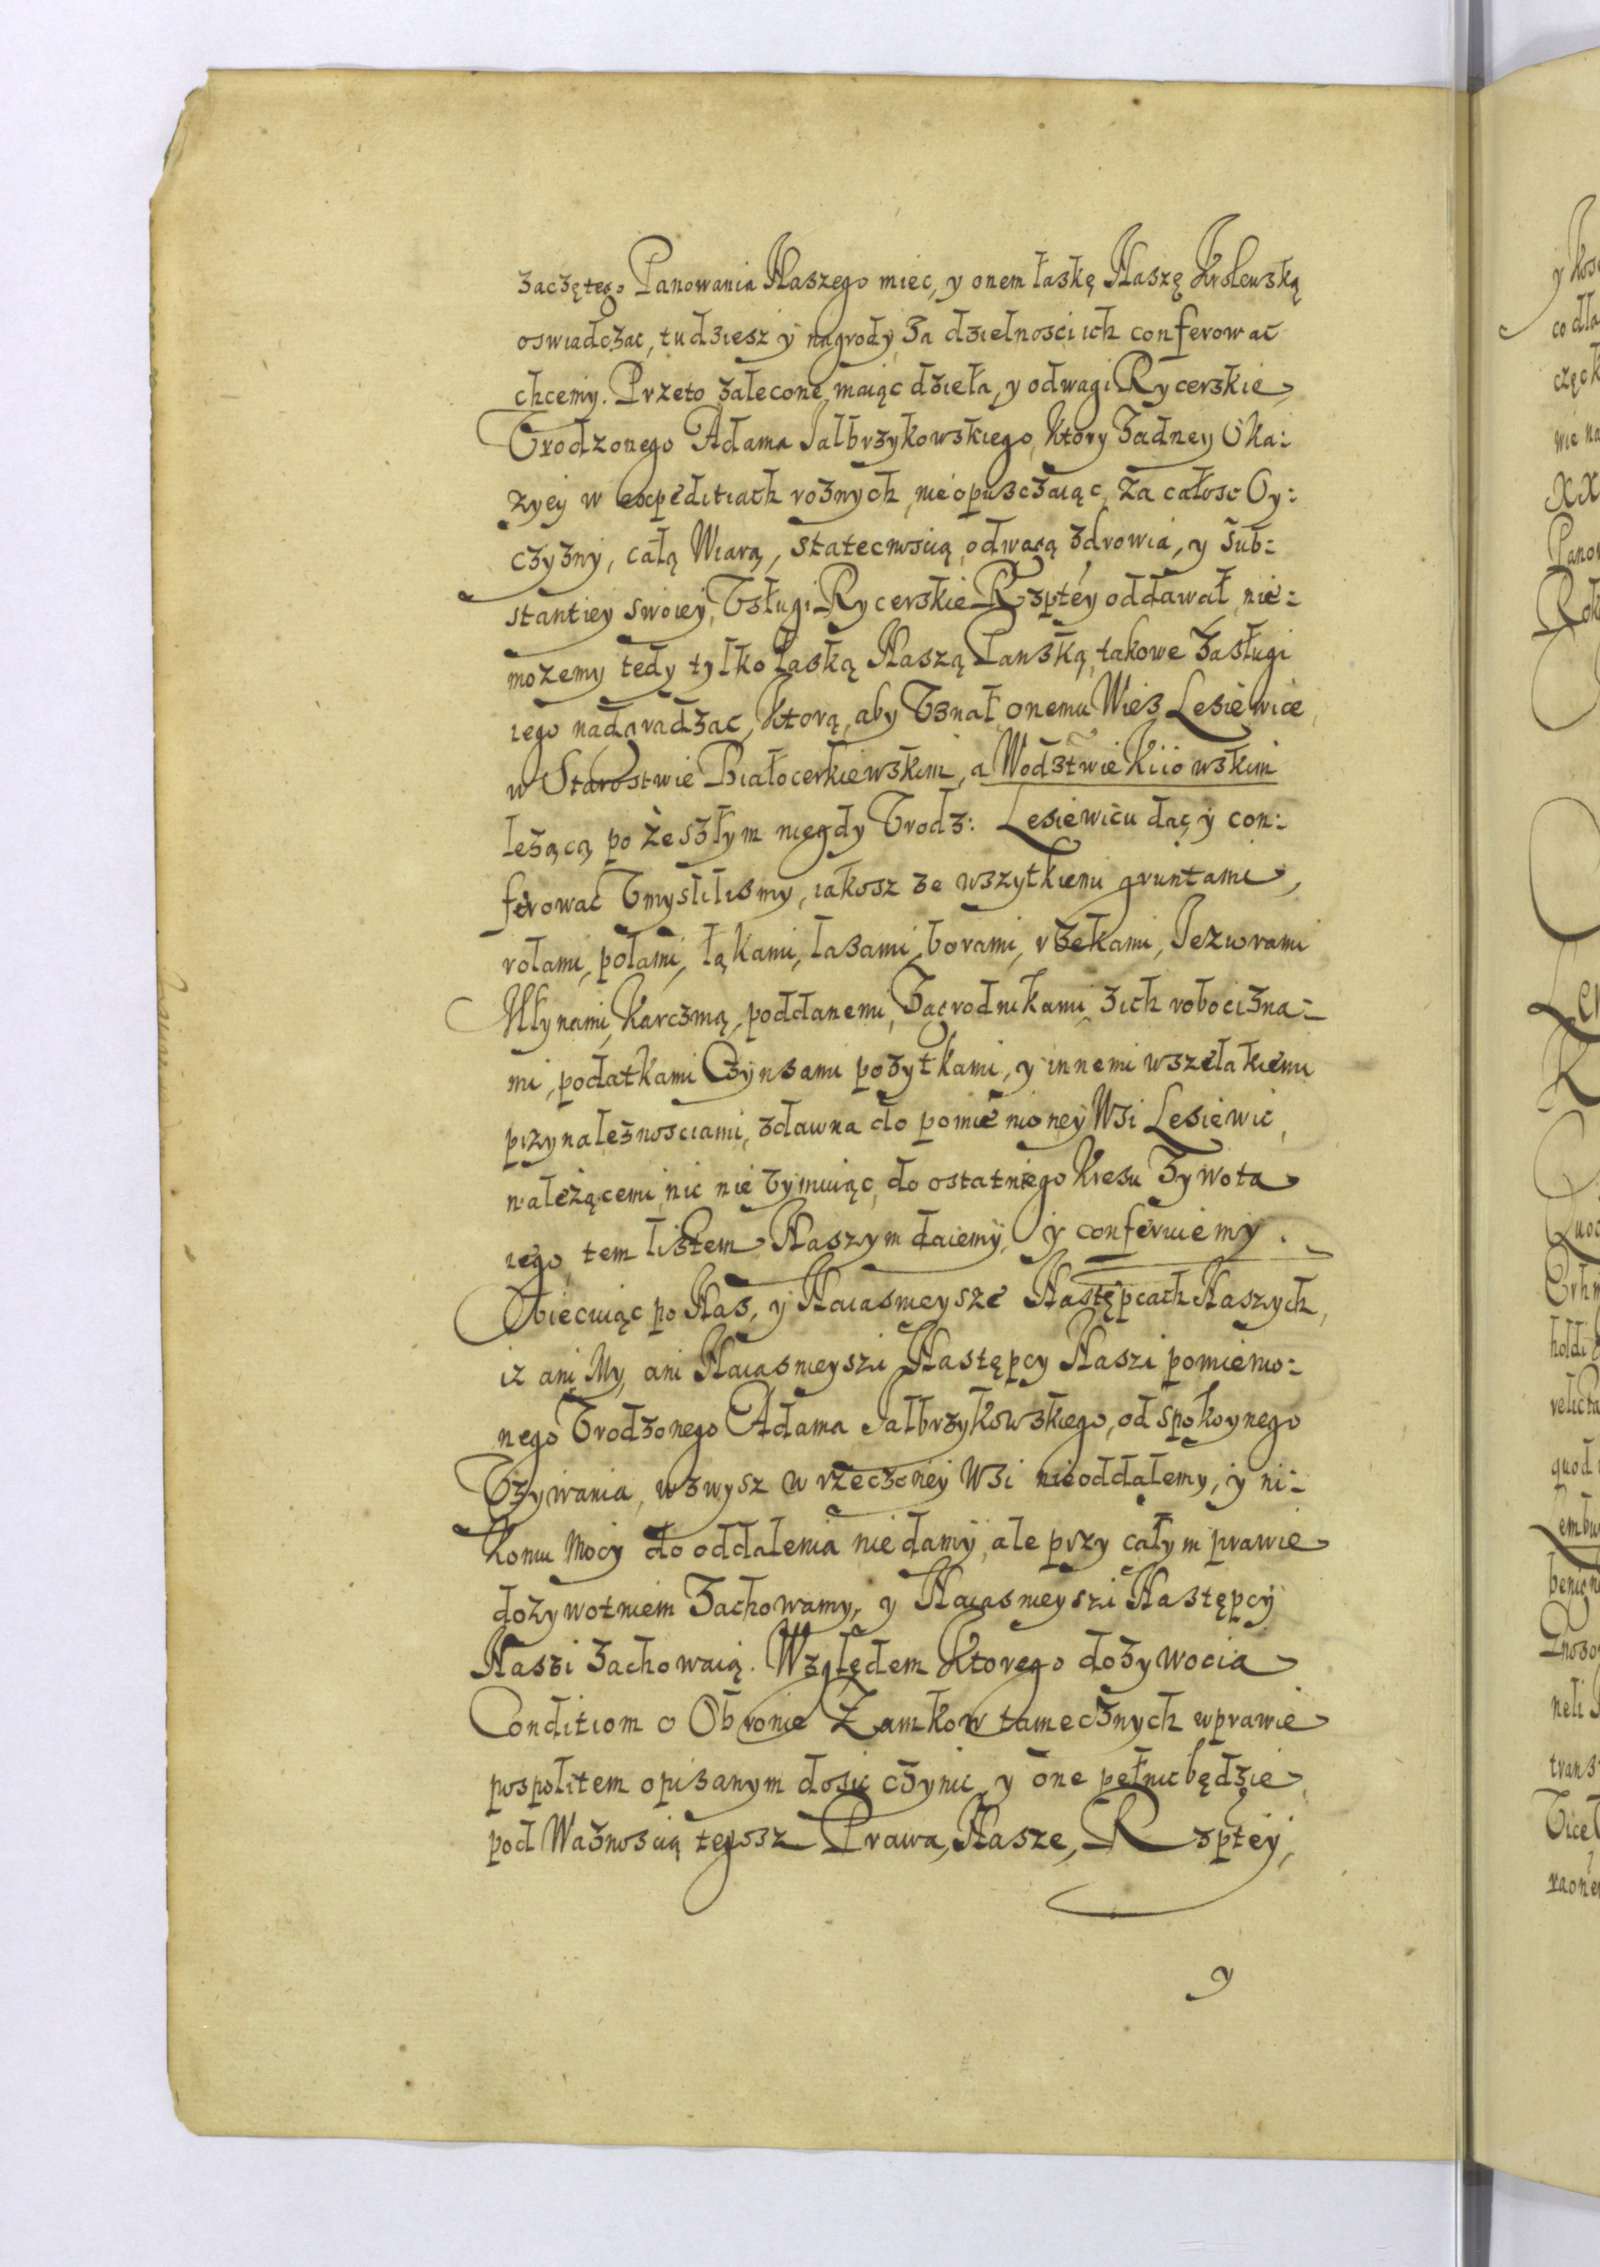 zaczętego Panowania Naszego miec, y onem łaskę Naszę Krolewską
oswiadczac, tudziesz y nagrody za dzielnosci ich conferowac
chcemy. Przeto zalecone maiąc dzieła, y odwagi Rycerskie
Vrodzonego Adama Jalbrzykowskiego, ktory żadney Oka:
zyey w expeditiach roznych nieopusczaiąc, za całosc Oy:
czyzny, całą Wiarą, statecznoscią, odwagą zdrowia, y sub:
stantiey swoiey, Vsługi Rycerskie Rzptey oddawał, nie:
mozemy tedy tylko łaską Naszą Panską, takowe zasługi
iego nadgradzac, ktorą, aby Vznał onemu Wies Lesiewice
w Starostwie Białocerkiewskim, a Wodztwie Kiiowskim
lezącą po zeszłym niegdy Vrodz: Lesiewicu dac y con:
ferowac Vmyslilismy, iakosz ze wszytkiemi gruntami,
rolami, polami, łąkami, lasami, borami, rzekami, Jeziorami
Młynami, Karczmą, poddanemi, Zagrodnikami, z ich robocizna:
mi, podatkami Czynsami pozytkami, y innemi wszelakiemi
przynaleznosciami, zdawna do pomienioney Wsi Lesiewic,
nalezącemi, nic nie Vymuiąc, do ostatniego Kresu Zywota
iego, tem listem Naszym daiemy, y conferuiemy.
Obiecuiąc po Nas, y Naiasnieysze Następcach Naszych,
iz ani My, ani Naiasnieyszi Następcy Naszi pomienio:
nego Vrodzonego Adama Jalbrzykowskiego, od spokoynego
Vzywania, wzwysz w rzeczoney Wsi nieoddalemy, y ni:
komu mocy do oddalenia nie damy, ale przy całym prawie
dozywotniem Zachowamy, y Naiasnieyszi Następcy
Naszi zachowaią. Względem Ktorego dozywocia
Conditiom o Obronie Zamkow tamecznych w prawie
pospolitem opisanym dosic czynic, y one pełnic będzie,
pod Waznoscią teyssz Prawa, Nasze, Rzptey,
y